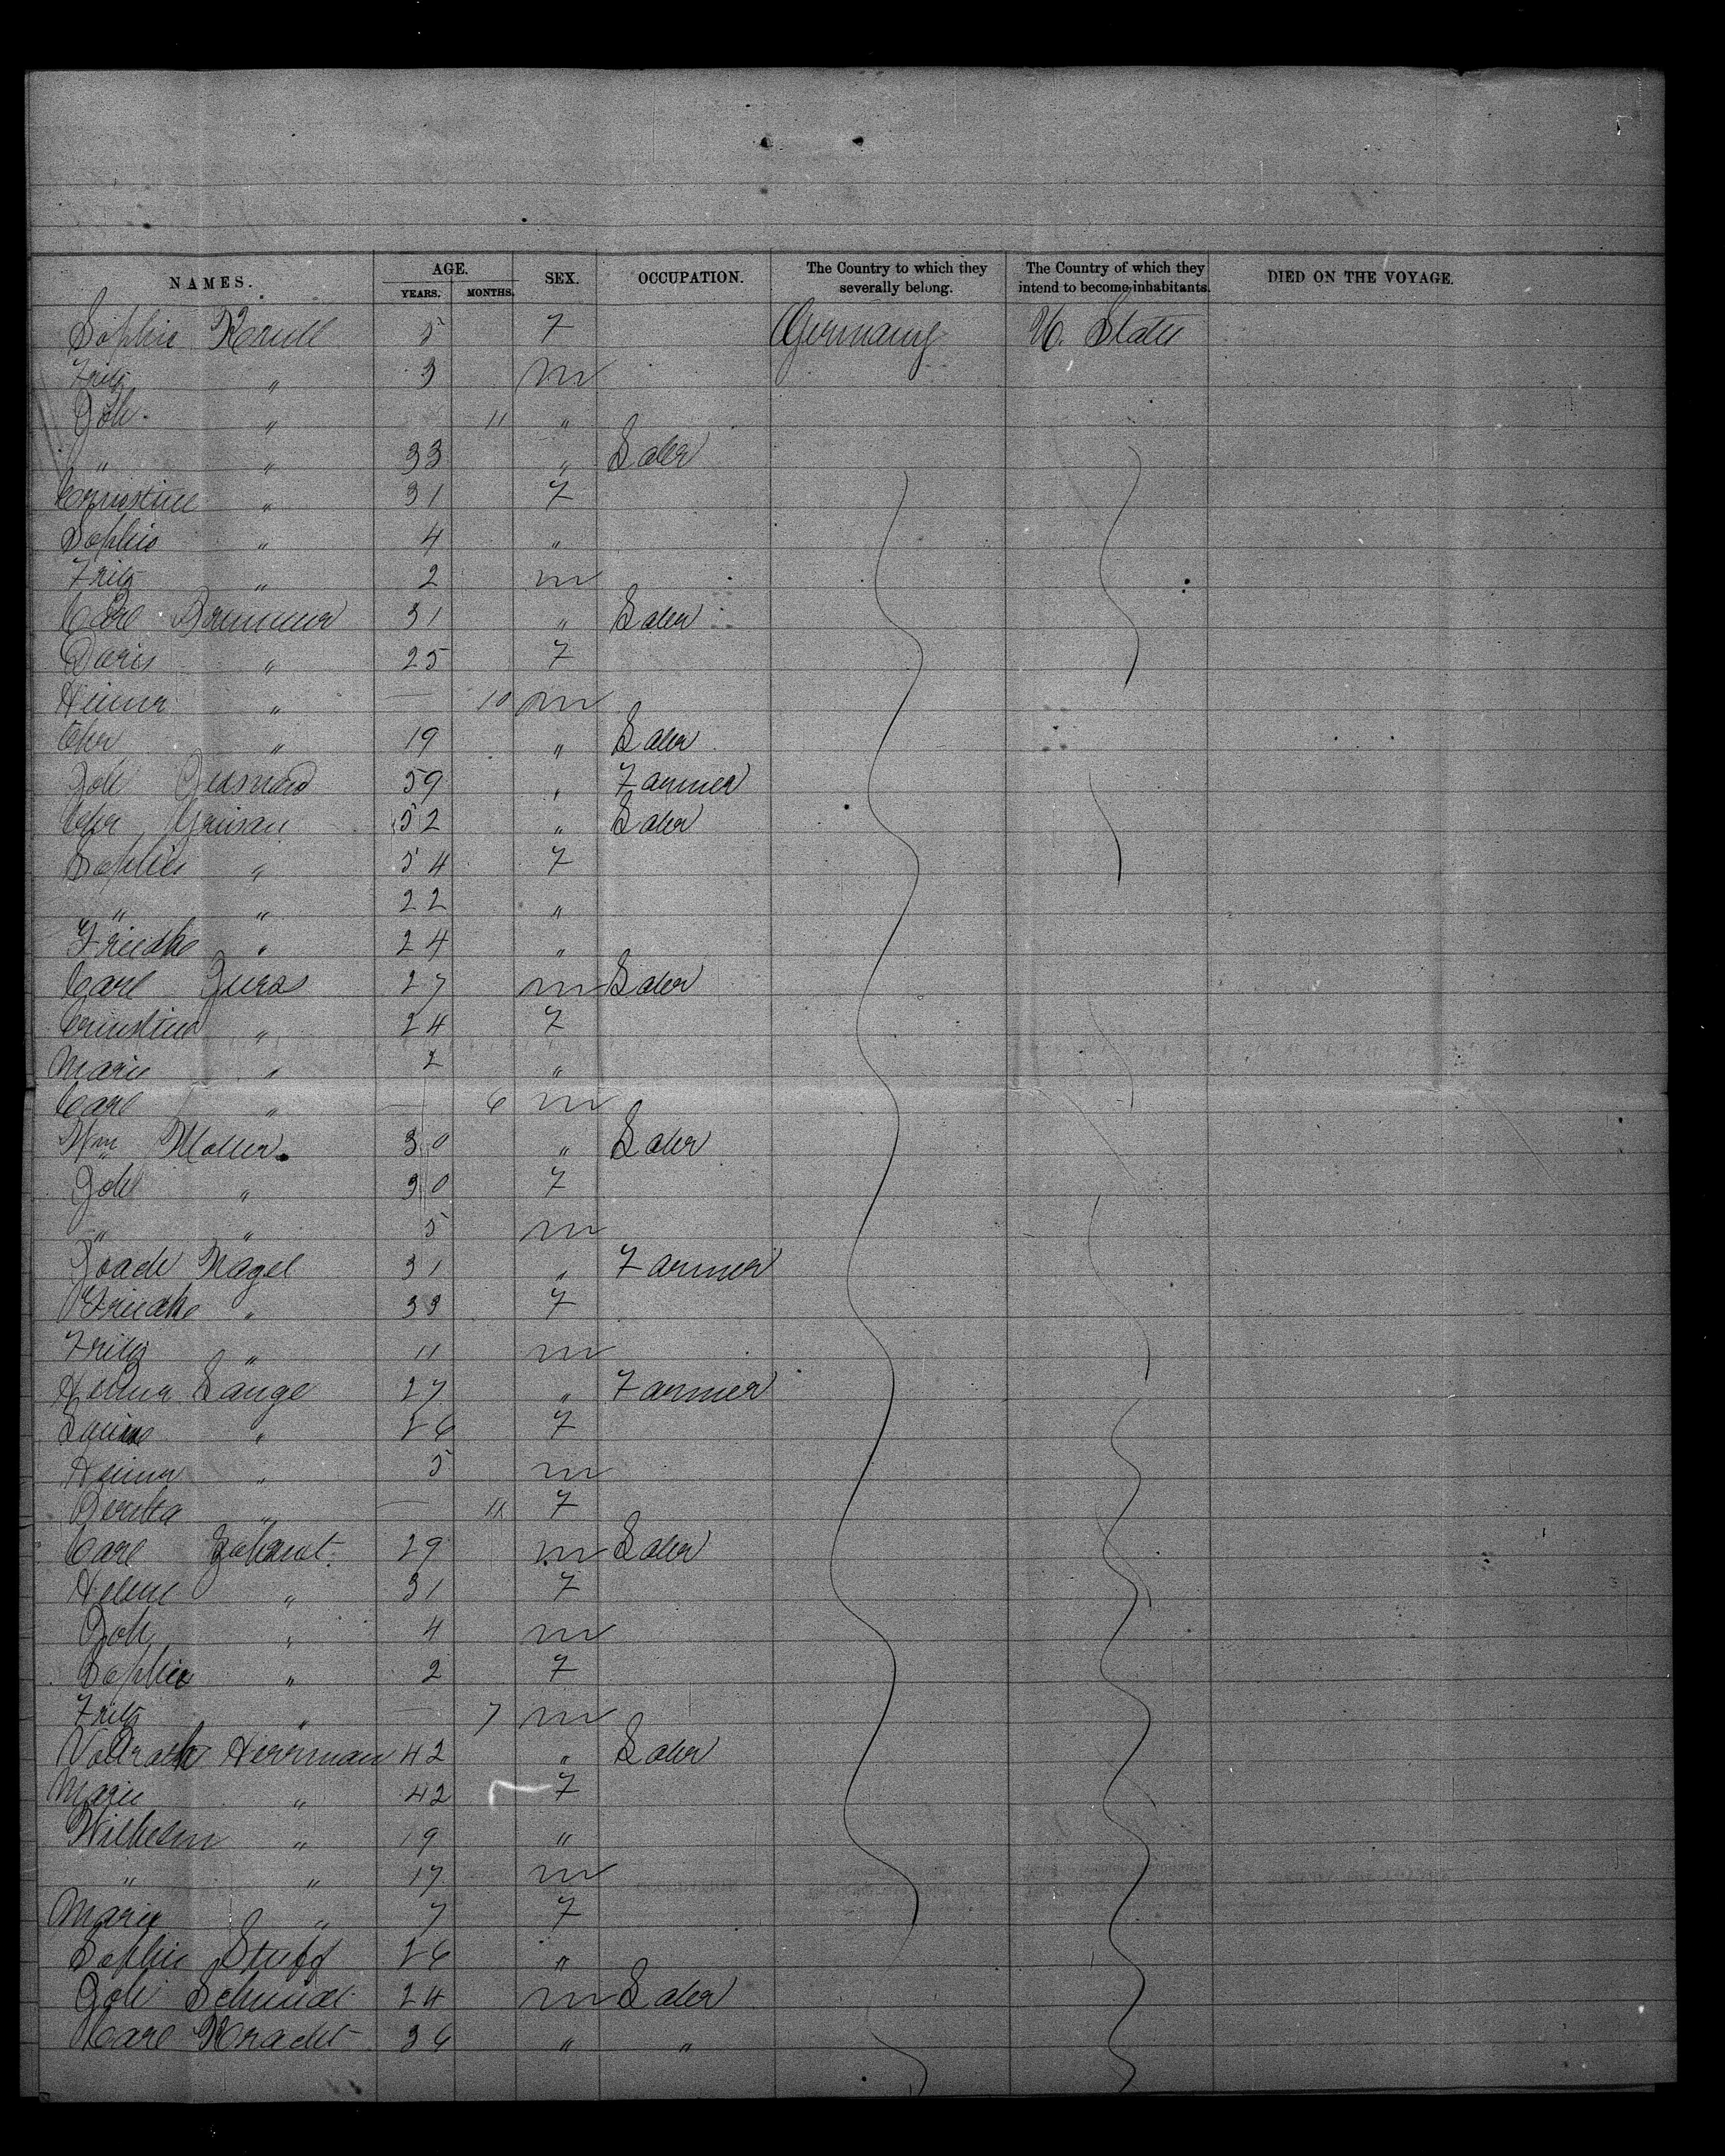 NAMES. AGE. YEARS. MONTHS. SEX. OCCUPATION. The Country to which they severally belong. The Country of which they intend to become inhabitants. DIED ON THE VOYAGE.
Sophie 5 F Germany U. States
Fritz " 3 m
Joh. " 11 "
" " 33 " Labr
Christine " 31 F
Sophie " 4 "
Fritz " 2 m
Carl 31 " Labr
Doris " 25 F
Heinr " — 10 m
Chr " 19 " Labr
Joh 59 " Farmer
Chr 52 " Labr
Sophie " 54 F
" " 22 "
Friedke " 24 "
Carl 27 m Labr
Christine " 24 F
Marie " 2 "
Carl " — 6 m
Wm Moller 30 " Labr
Joh " 30 F
" " 5 m
Joach Nagel 31 " Farmer
Friedke " 33 F
Fritz " 11 m
Heinr Lange 27 " Farmer
Louise " 26 F
Heinr " 5 m
Bertha " — 11 F
Carl 29 m Labr
Helene " 31 F
Joh " 4 m
Sophie " 2 F
Fritz " — 7 m
Vollrath Herrman 42 " Labr
Marie " 42 F
Wilhelm " 19 "
" " 17 m
Marie " 7 F
Sophie 26 "
Joh Schmidt 24 m Labr
Carl Kracht 36 " "